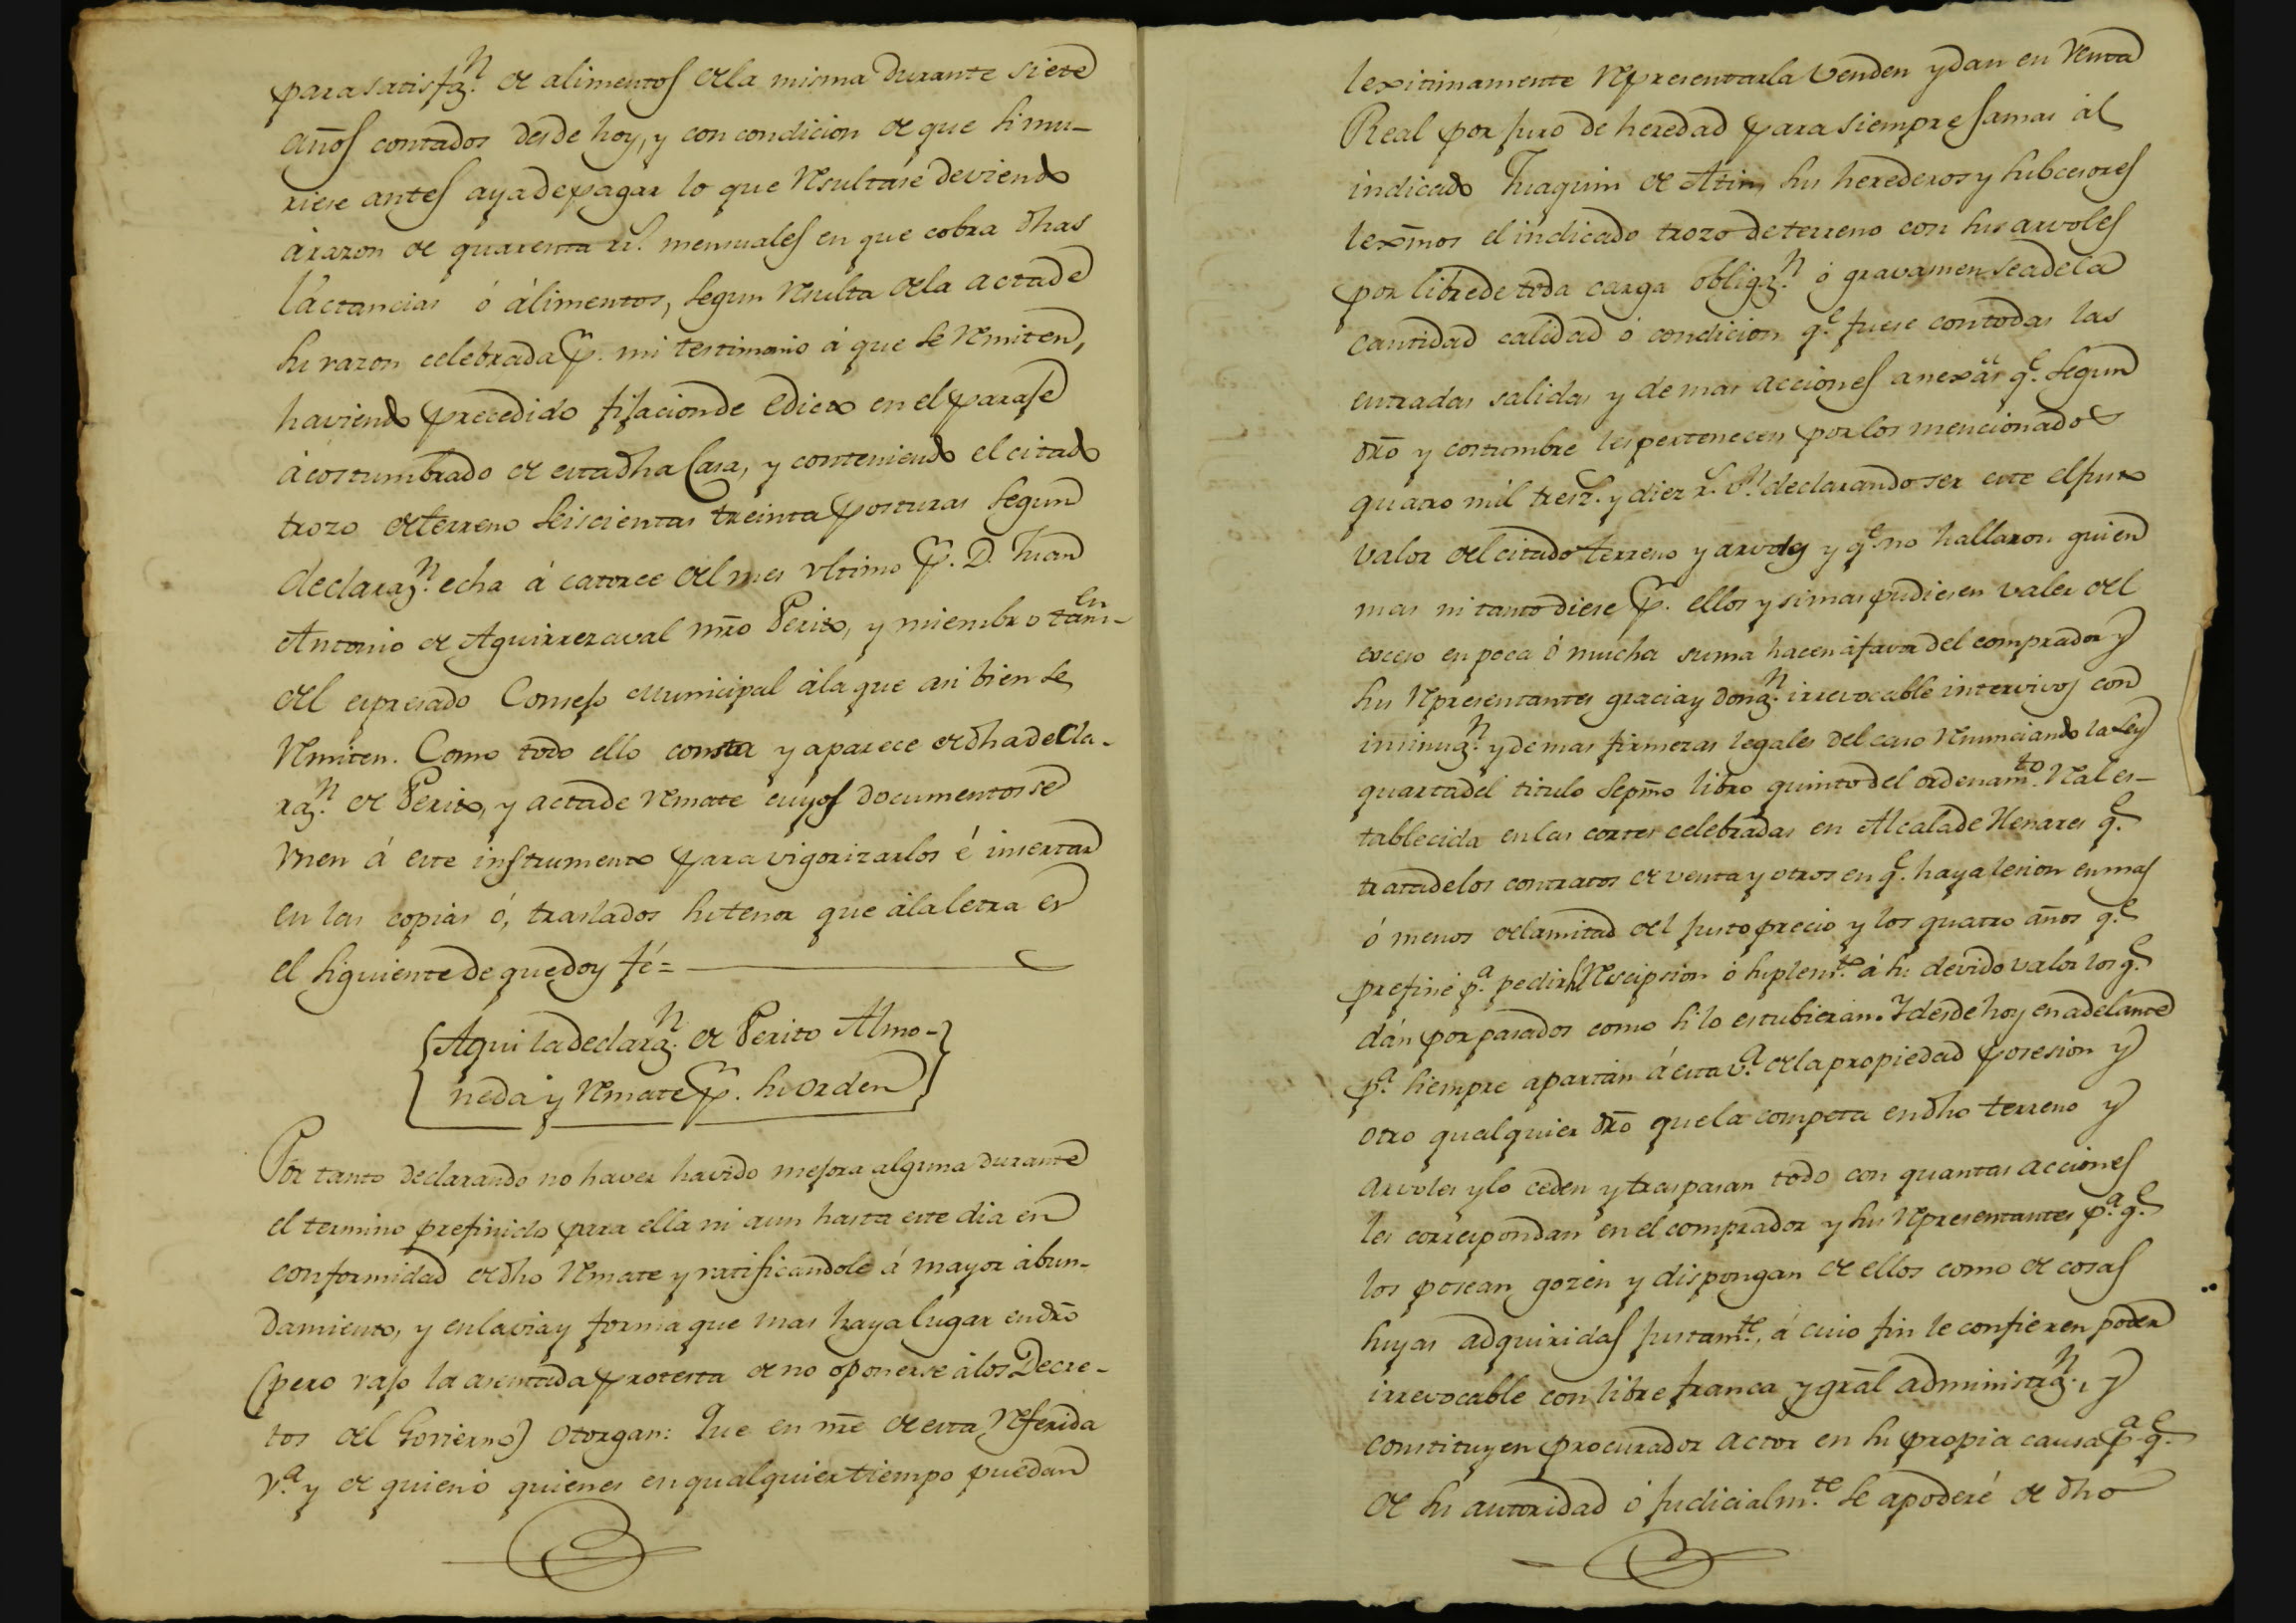 para satisfaz.n de alimentos de la misma durante siete
años contados desde hoy, y con condicion de que si mu-
riese antes aya de pagar lo que resultase deviendo
à razon de quarenta rs. mensuales en que cobra dhas
láctancias ó álimentos, segun resulta de la acta de
su razon celebrada p. mi testimonio á que se remiten,
haviendo precedido fijacion de edicto en el paraje
àcostumbrado de esta dha Casa, y conteniendo el citado
trozo de terreno seiscientas treinta posturas segun
declaraz.n echa á catorce del mes ultimo p. D. Juan
Antonio de Aguirrezaval mro Perito, y miembro tam-en
del expresado Consejo Municipal à la que asi bien se
remiten. Como todo ello consta y aparece de dha decla-
raz.n de Perito, y acta de remate cuyos documentos se
vnen á este instrumento para vigorizarlos é insertar
en las copias ó, traslados su tenor que à la letra es
el siguiente de que doy fé =
Aqui la declaraz.n de Perito Almo-
neda y remate p. su orden
Por tanto declarando no haver havido mejora alguna durante
el termino prefinido para ella ni aun hasta este dia en
conformidad de dho remate y ratificandole á mayor àbun-
damiento, y en la via y forma que mas haya lugar en dro
(pero vajo la asentada protesta de no oponerse à los Decre-
tos del Govierno) otorgan: Que en nre de esta referida
v.a y de quien ó quienes en qualquier tiempo puedan
lexitimamente representarla venden y dan en venta
Real por juro de heredad para siempre jamas àl
indicado Juaquin de Atin, sus herederos y subcesores
lexmos el indicado trozo de terreno con sus arvoles
por libre de toda carga obligaz.n ó gravamen sea de la
cantidad calidad ó condicion q.e fuese con todas las
entradas salidas y demas acciones anexas q.e segun
dro y costumbre les pertenecen por los mencionados
quatro mil tresz.s y diez r.s v.n declarando ser este el justo
valor del citado terreno y arvoles y q.e no hallaron quien
mas ni tanto diese p. ellos y si mas pudiesen valer del
exceso en poca ó mucha suma hacen à favor del comprador y
sus representantes gracia y donaz.n irrevocable intervivos con
insinuaz.n y demas firmezas legales del caso renunciando la Ley
quarta del titulo sepmo libro quinto del ordenam.to real es-
tablecida en las cortes celebradas en Alcala de Henares q.e
trata de los contratos de venta y otros en q.e haya lesion en mas
ó menos de la mitad del justo precio y los quatro años q.e
prefine p.a pedir su rescipsion ó suplem.to á su devido valor los q.e
dán por pasados como si lo estubieran. Y desde hoy en adelante
p.a siempre apartan á esta v.a de la propiedad posesion y
otro qualquier dro que la competa en dho terreno y
arvoles y lo ceden y traspasan todo con quantas acciones
les correspondan en el comprador y sus representantes p.a q.e
los posean, gozen y dispongan de ellos como de cosas
suyas adquiridas justam.te, á cuio fin le confieren poder
irrevocable con libre franca y gral administraz.n, y
constituyen procurador actor en su propia causa p.a q.e
de su autoridad ó judicialm.te se apoderé de dho